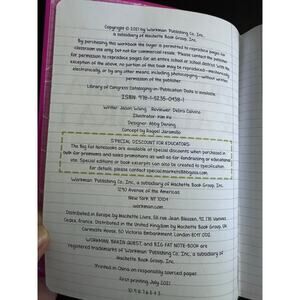 Copyright © 2021 by Workman Publishing Co., Inc.,
a subsidiary of Hachette Book Group, Inc.
By purchasing this workbook, the buyer is permitted to reproduce pages for
classroom use only, but not for commercial resale. Please contact the publisher
for permission to reproduce pages for an entire school or school district. With the
exception of the above, no portion of this book may be reproduced—mechanically,
electronically, or by any other means, including photocopying—without written
permission of the publisher.
Library of Congress Cataloging-in-Publication Data is available.
ISBN 978-1-5235-0438-1
Writer Jason Wang Reviewer Debra Calvino
Illustrator Kim Ku
Designer Abby Dening
Concept by Raquel Jaramillo
SPECIAL DISCOUNT FOR EDUCATORS
The Big Fat Notebooks are available at special discounts when purchased in
bulk for premiums and sales promotions as well as for fundraising or educational
use. Special editions or book excerpts can also be created to specification.
For details, please contact specialmarkets@hbgusa.com.
Workman Publishing Co., Inc., a subsidiary of Hachette Book Group, Inc.
1290 Avenue of the Americas
New York, NY 10104
workman.com
Distributed in Europe by Hachette Livre, 58 rue Jean Bleuzen, 92 178 Vanves
Cedex, France. Distributed in the United Kingdom by Hachette Book Group, UK,
Carmelite House, 50 Victoria Embankment, London EC4Y 0DZ.
WORKMAN, BRAIN QUEST, and BIG FAT NOTEBOOK are
registered trademarks of Workman Publishing Co., Inc., a subsidiary of
Hachette Book Group, Inc.
Printed in China on responsibly sourced paper.
First printing July 2021